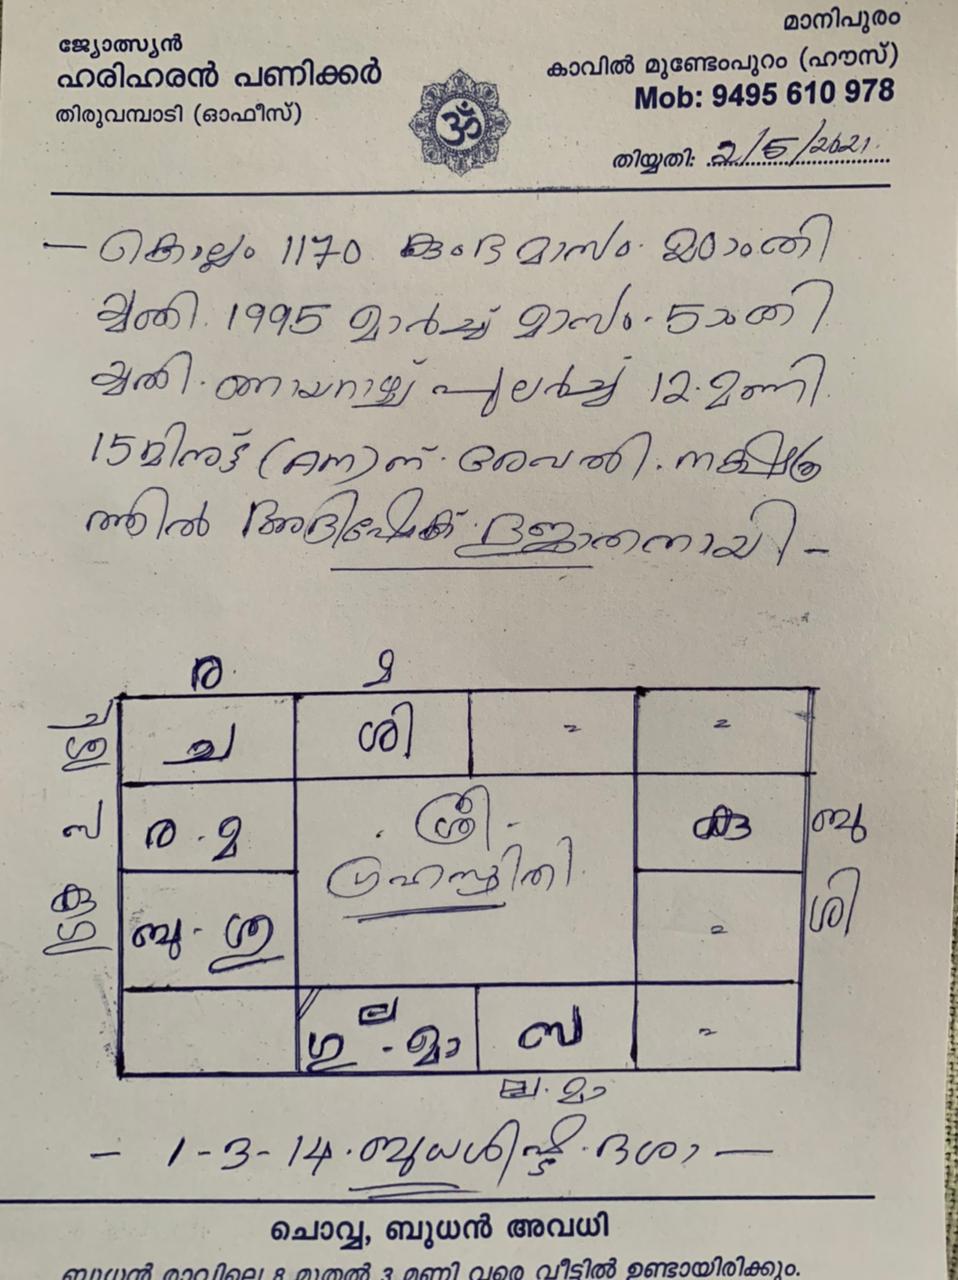 ജ്യോത്സ്യൻ
ഹരിഹരൻ പണിക്കർ
തിരുവമ്പാടി (ഓഫീസ്)
ॐ
മാനിപുരം
കാവിൽ മുണ്ടേംപുറം (ഹൗസ്)
Mob: 9495 610 978
തിയ്യതി: 2/5/2021
— കൊല്ലം 1170 കുംഭ മാസം 20ാം തി
യ്യതി. 1995 മാർച്ച് മാസം. 5ാം തി
യ്യതി. ഞായറാഴ്ച പുലർച്ച 12.മണി
15 മിനുട്ട് (Am)ന്. രേവതി. നക്ഷത്ര
ത്തിൽ അഭിഷേക് ഭൂജാതനായി –
ര മ
ച ശി = =
ശു
സ ര . മ . ശ്രീ . കു ബു
ഗ്രഹസ്ഥിതി
ഗു കു ബു . ശു = ശി
ല
ഗു - മാ സ =
ല . മാ
– 1-3-14. ബുധശിഷ്ട ദശാ —
ചൊവ്വ, ബുധൻ അവധി
ബുധൻ രാവിലെ 8 മുതൽ 3 മണി വരെ വീട്ടിൽ ഉണ്ടായിരിക്കും.